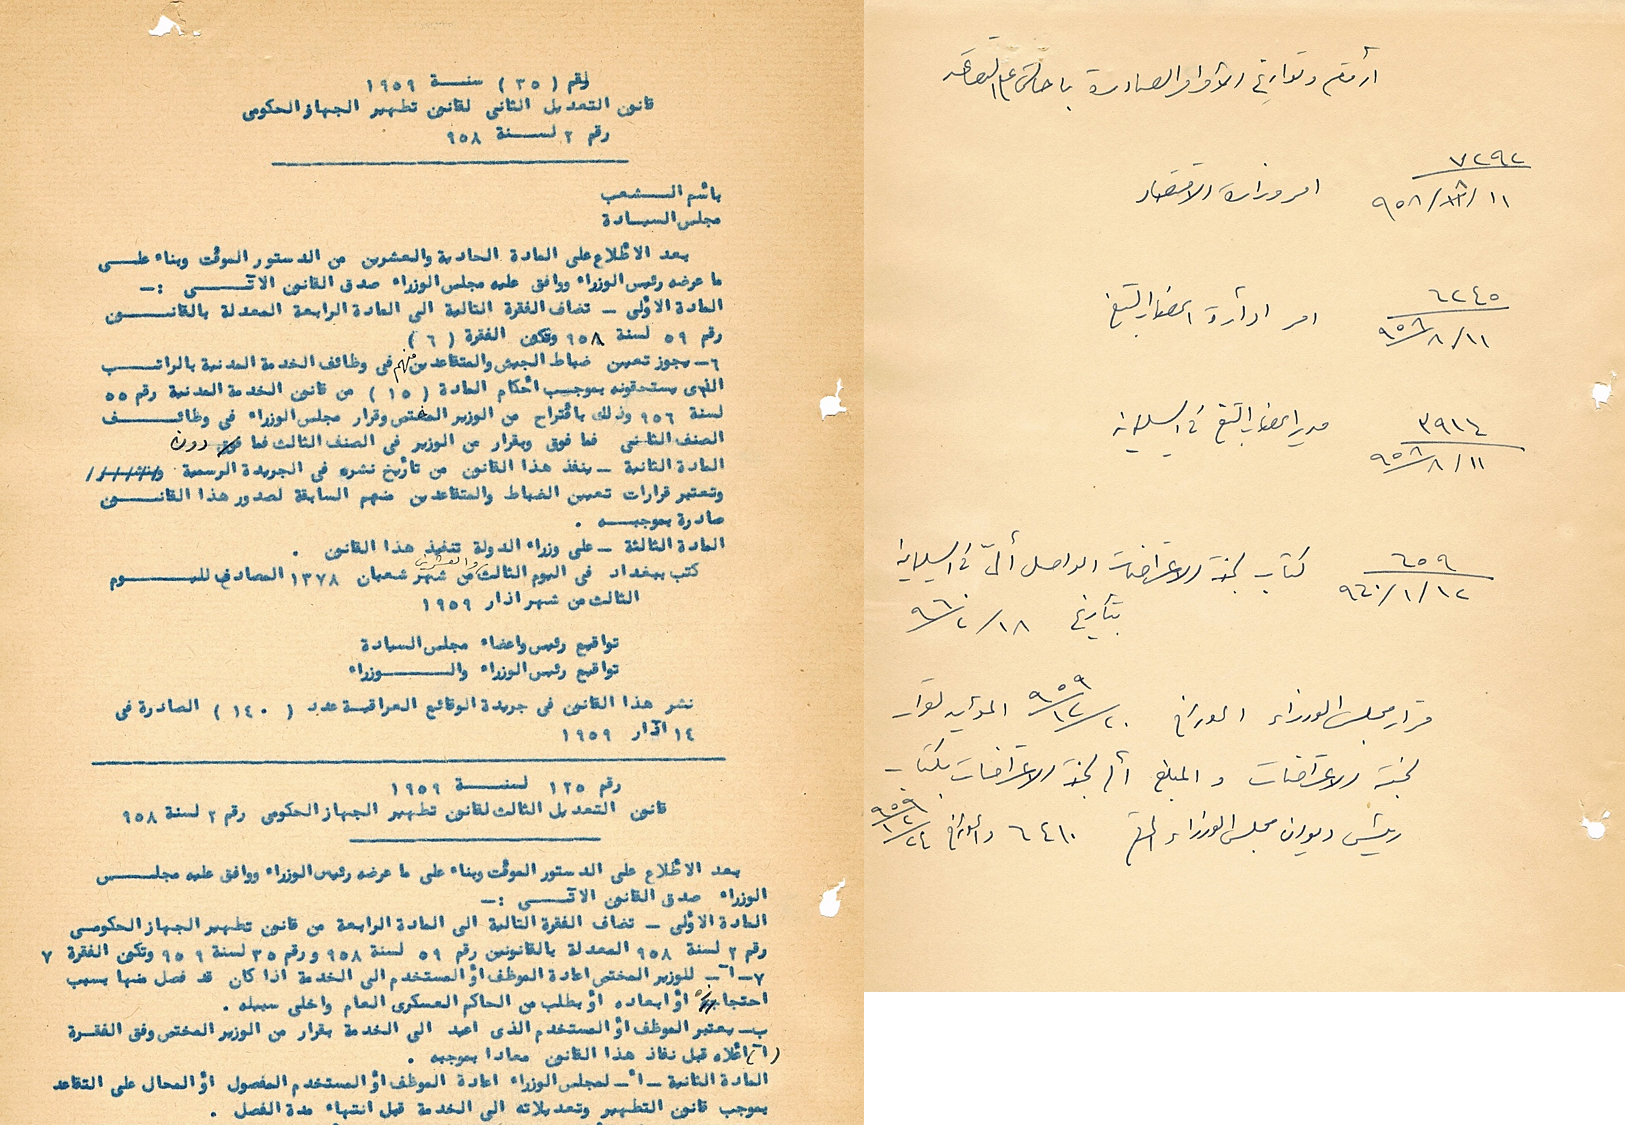 رقم ( ٣٥ ) سنة ١٩٥٩
قانون التعديل الثاني لقانون تطهير الجهاز الحكومي
رقم ٢ لسنة ٩٥٨
باسم الشعب
مجلس السيادة
بعد الاطلاع على المادة الحادية والعشرين من الدستور المؤقت وبناء على
ما عرضه رئيس الوزراء ووافق عليه مجلس الوزراء صدق القانون الآتي :-
المادة الأولى - تضاف الفقرة التالية الى المادة الرابعة المعدلة بالقانون
رقم ٥٩ لسنة ٩٥٨ وتكون الفقرة ( ٦ )
٦- يجوز تعيين ضباط الجيش والمتقاعدين منهم في وظائف الخدمة المدنية بالراتب
الذي يستحقونه بموجب أحكام المادة ( ١٥ ) من قانون الخدمة المدنية رقم ٥٥
لسنة ٩٥٦ وذلك باقتراح من الوزير المختص وقرار مجلس الوزراء في وظائف
الصنف الثاني فما فوق وبقرار من الوزير في الصنف الثالث فما دون
المادة الثانية - ينفذ هذا القانون من تأريخ نشره في الجريدة الرسمية
وتعتبر قرارات تعيين الضباط والمتقاعدين منهم السابقة لصدور هذا القانون
صادرة بموجبه .
المادة الثالثة - على وزراء الدولة تنفيذ هذا القانون .
كتب ببغداد في اليوم الثالث والعشرين من شهر شعبان ١٣٧٨ المصادف لليوم
الثالث من شهر اذار ١٩٥٩
تواقيع رئيس واعضاء مجلس السيادة
تواقيع رئيس الوزراء والوزراء
نشر هذا القانون في جريدة الوقائع العراقية عدد ( ١٤٠ ) الصادرة في
١٤ آذار ١٩٥٩
رقم ١٢٥ لسنة ١٩٥٩
قانون التعديل الثالث لقانون تطهير الجهاز الحكومي رقم ٢ لسنة ٩٥٨
بعد الاطلاع على الدستور المؤقت وبناء على ما عرضه رئيس الوزراء ووافق عليه مجلس
الوزراء صدق القانون الآتي :-
المادة الأولى - تضاف الفقرة التالية الى المادة الرابعة من قانون تطهير الجهاز الحكومي
رقم ٢ لسنة ٩٥٨ المعدلة بالقانونين رقم ٥٩ لسنة ٩٥٨ ورقم ٣٥ لسنة ٩٥٩ وتكون الفقرة ٧
٧- آ- للوزير المختص اعادة الموظف أو المستخدم الى الخدمة اذا كان قد فصل منها بسبب
احتجازه أو ابعاده أو بطلب من الحاكم العسكري العام واخلى سبيله .
ب- يعتبر الموظف أو المستخدم الذي اعيد الى الخدمة بقرار من الوزير المختص وفق الفقرة
(آ) أعلاه قبل نفاذ هذا القانون معادا بموجبه .
المادة الثانية - أ- لمجلس الوزراء اعادة الموظف أو المستخدم المفصول أو المحال على التقاعد
بموجب قانون التطهير وتعديلاته الى الخدمة قبل انتهاء مدة الفصل .
أرقام وتواريخ الأوامر الصادرة باحالتي على التقاعد
٧٢٩٢
امر وزارة الاقتصاد ١١/٨/٩٥٨
٦٢٤٥
امر ادارة انحصار التبغ ١١/٨/٩٥٨
٣٩١٤
مدير انحصار التبغ في السليمانية ١١/٨/٩٥٨
٦٥٩
كتاب لجنة الاعتراضات الواصل ألي في السليمانية ١٢/١/٩٦٠
بتأريخ ١٨/٢/٩٦٠
قرار مجلس الوزراء المورخ ٢٠/١٢/٩٥٩ المؤيد لقرار
لجنة الاعتراضات والمبلغ الى لجنة الاعتراضات بكتاب
رئيس ديوان مجلس الوزراء المرقم ٦٤١٠ والمورخ ٢٤/١٢/٩٥٩